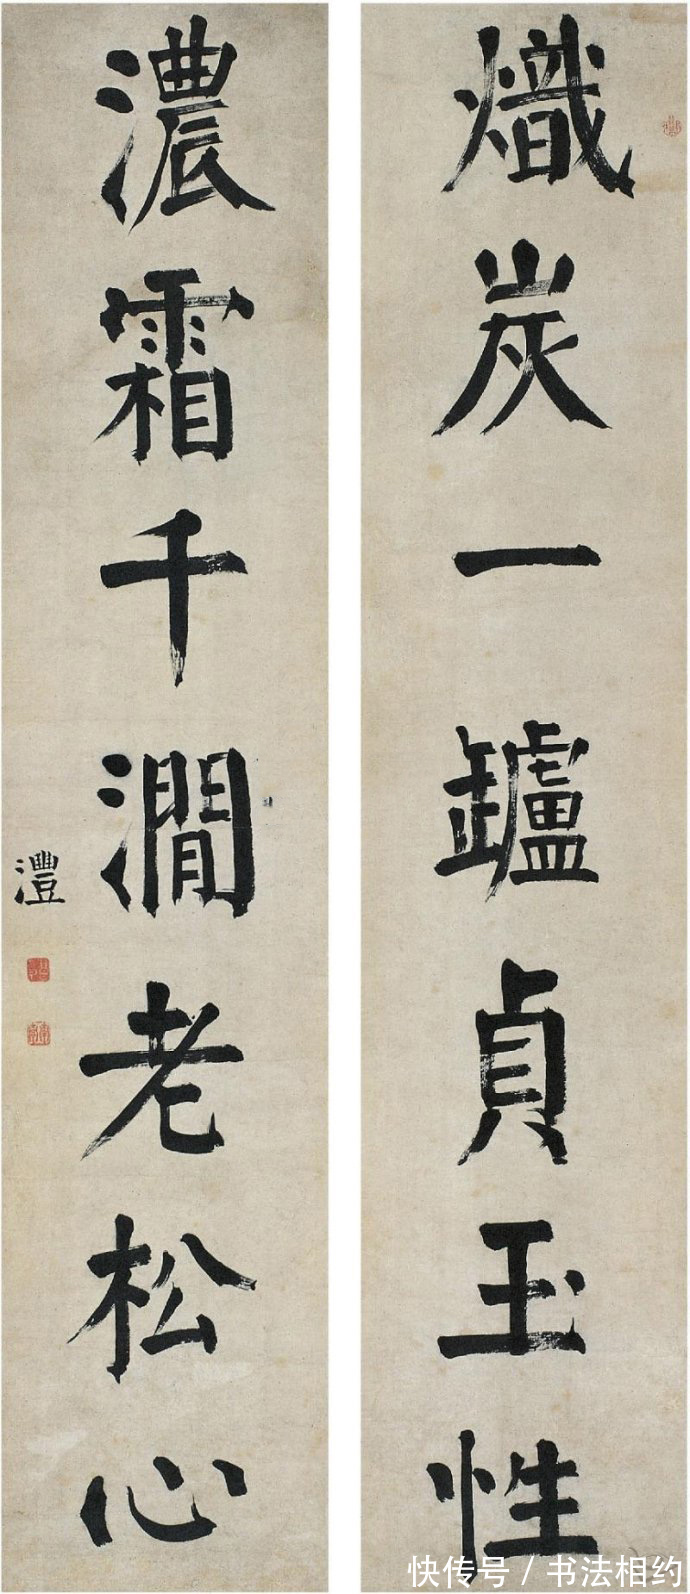 熾炭一罏貞玉性
濃霜千澗老松心
灃
快传号 / 书法相约